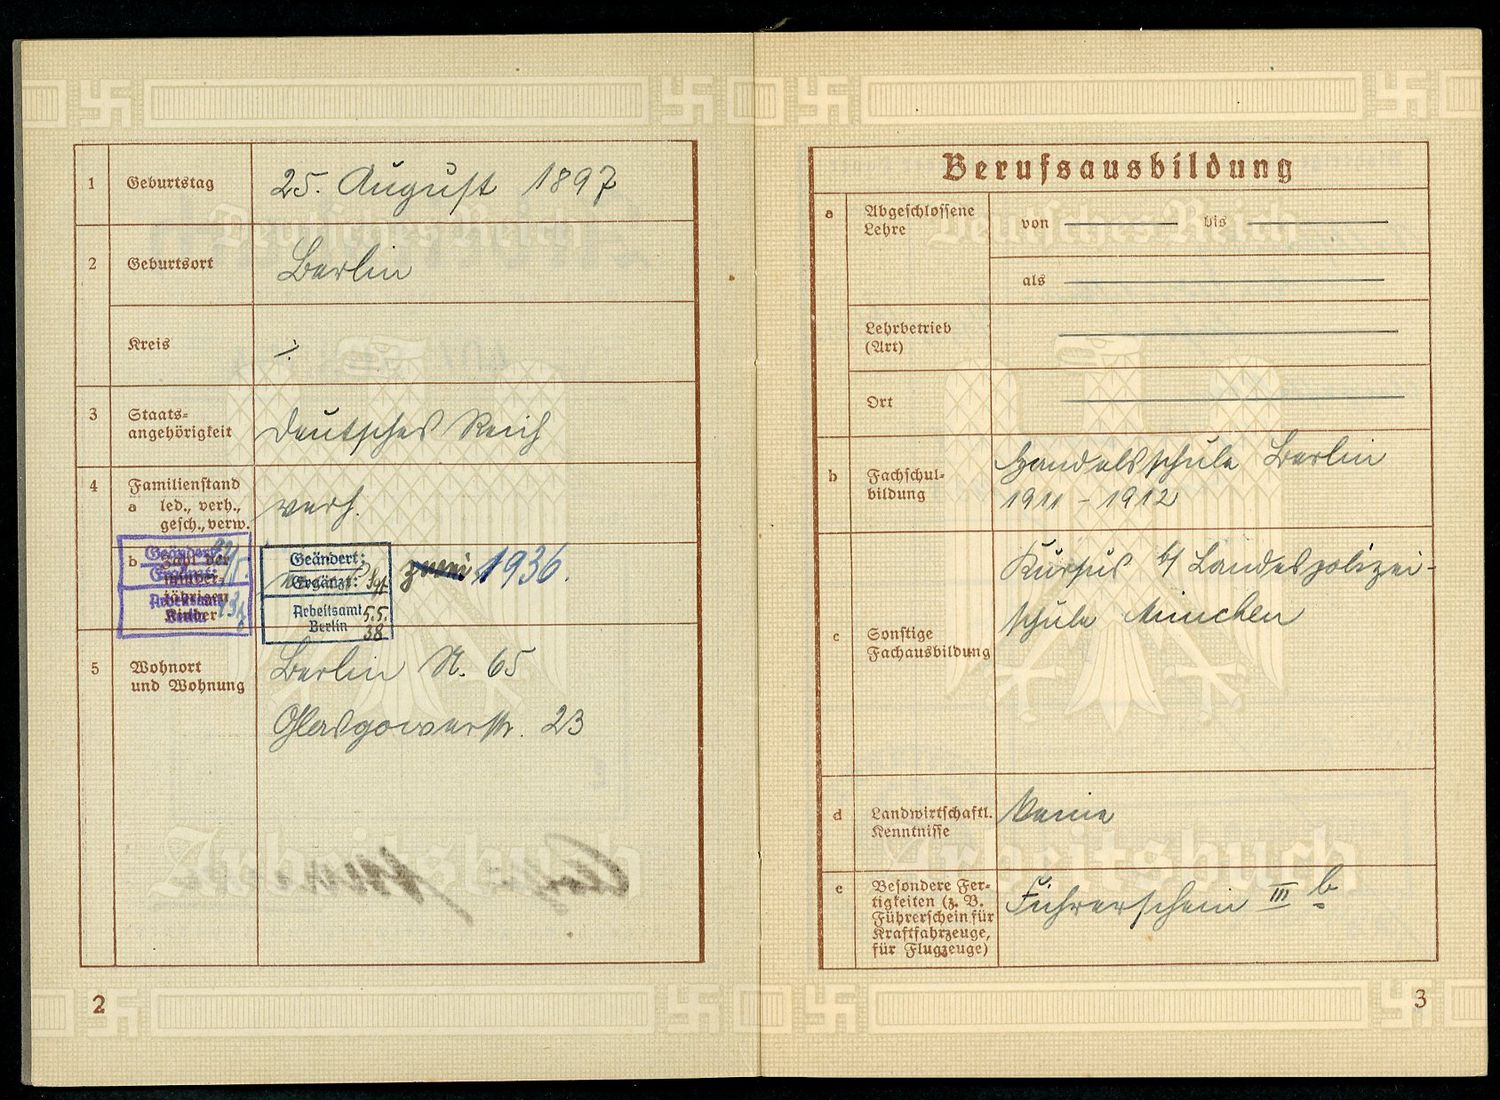 1 Geburtstag 25. August 1897
2 Geburtsort Berlin
Kreis ./.
3 Staats=
angehörigkeit Deutsches Reich
4 Familienstand
a led., verh.,
gesch., verw. verh.
b Zahl der
minder-
jährigen
Kinder
Geändert:
Ergänzt:
Arbeitsamt
Berlin
Geändert:
Ergänzt:
Arbeitsamt 5.5.
Berlin 38
zwei 1936.
5 Wohnort
und Wohnung
Berlin N. 65
Glasgowerstr. 23
Deutsches Reich
Arbeitsbuch
2
Berufsausbildung
a Abgeschlossene
Lehre
von bis
als
Lehrbetrieb
(Art)
Ort
b Fachschul-
bildung
Handelsschule Berlin
1911 - 1912
c Sonstige
Fachausbildung
Kursus b/ Landespolizei-
schule München
d Landwirtschaftl.
Kenntnisse
Keine
e Besondere Fer-
tigkeiten (z. B.
Führerschein für
Kraftfahrzeuge,
für Flugzeuge)
Führerschein III b
Deutsches Reich
Arbeitsbuch
3